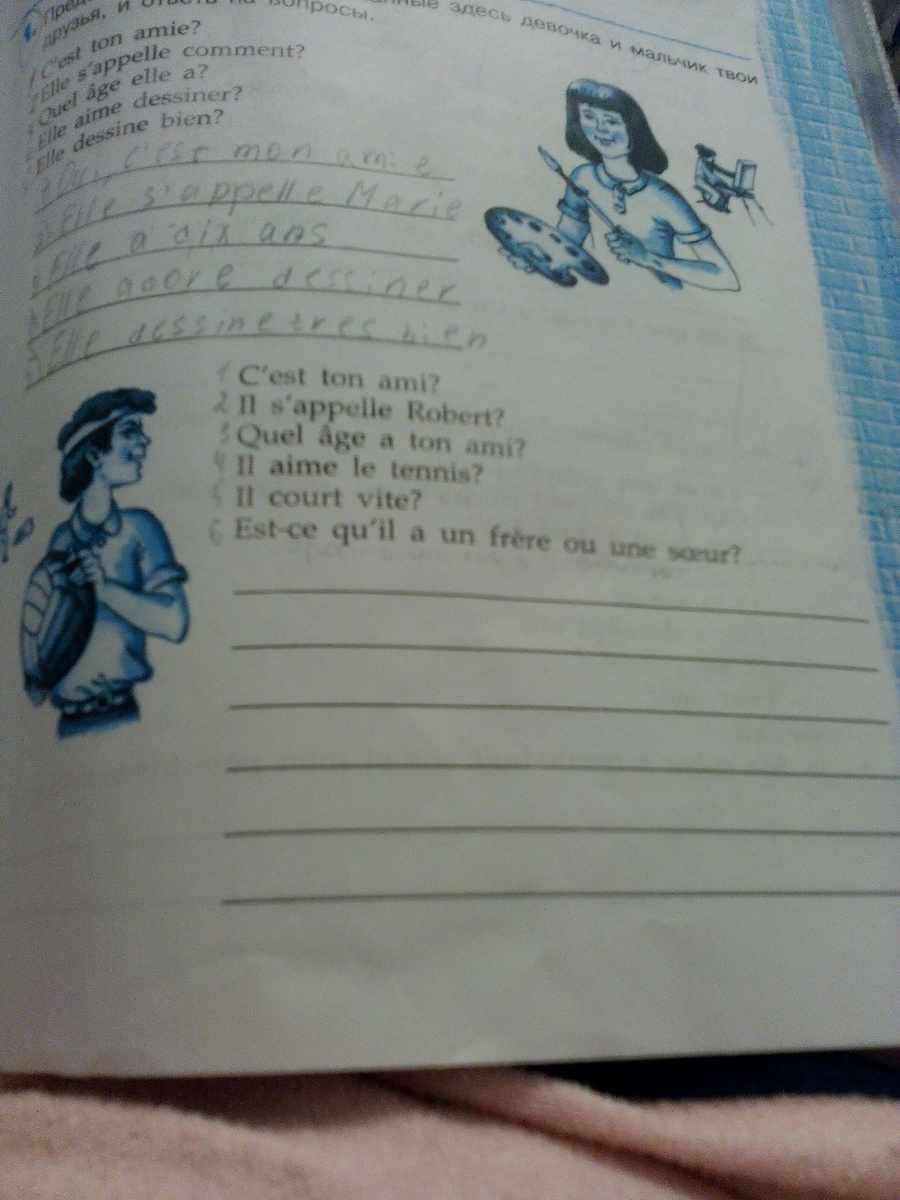 здесь девочка и мальчик твои
друзья, и ответь на вопросы.
1 C'est ton amie?
Elle s'appelle comment?
Quel âge elle a?
Elle aime dessiner?
Elle dessine bien?
Oui, c'est mon amie
Elle s'appelle Marie
Elle a dix ans
Elle adore dessiner
Elle dessine tres bien
1 C'est ton ami?
2 Il s'appelle Robert?
3 Quel âge a ton ami?
4 Il aime le tennis?
5 Il court vite?
6 Est-ce qu'il a un frère ou une sœur?